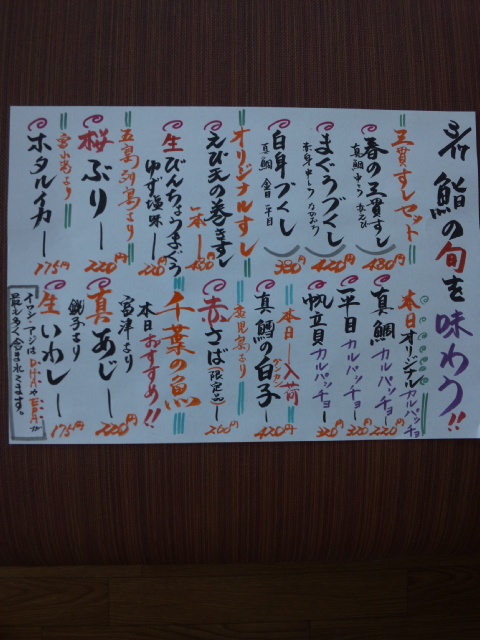 3/17 鮨の旬を味わう!!
三貫すしセット
春の三貫すし 480円
まぐろづくし 420円
白身づくし 380円
真鯛
平目
オリジナルすし
えび天の巻きずし
一本 480円
生びんちょうまぐろ
ゆず塩味 220円
五島列島より
桜ぶり 220円
富山湾より
ホタルイカ 175円
本日オリジナルカルパッチョ
真鯛カルパッチョ 220円
平目カルパッチョ 320円
帆立貝カルパッチョ 320円
本日入荷
真鱈の白子 420円
鹿児島より
赤さば(限定品) 200円
千葉の魚
本日おすすめ!!
富津より
真あじ 220円
銚子より
生いわし 175円
イワシ・アジはDHAやEPAが
最も多く含まれてます。